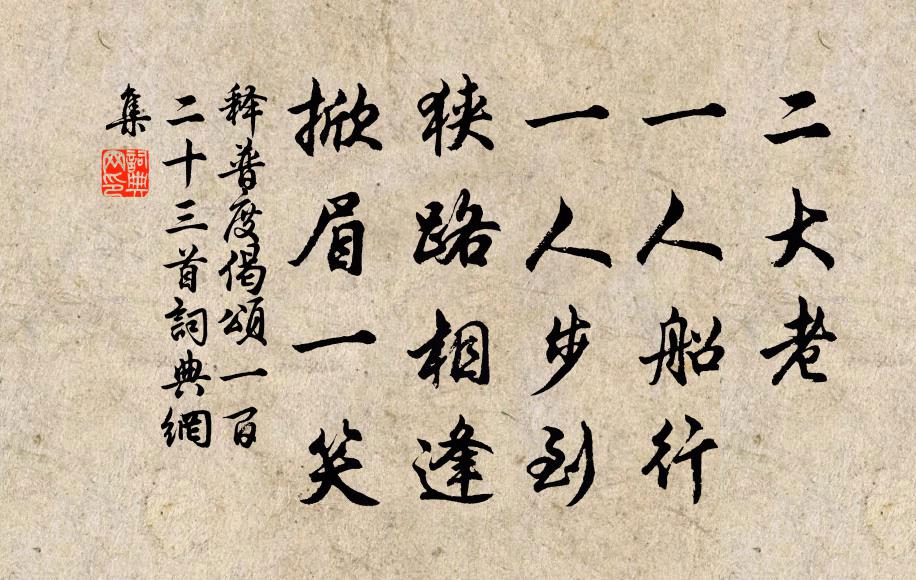 二大老
一人船行
一人步到
狭路相逢
掀眉一笑
释普度偈頌一百
二十三首詞典網
集
詞典
网印